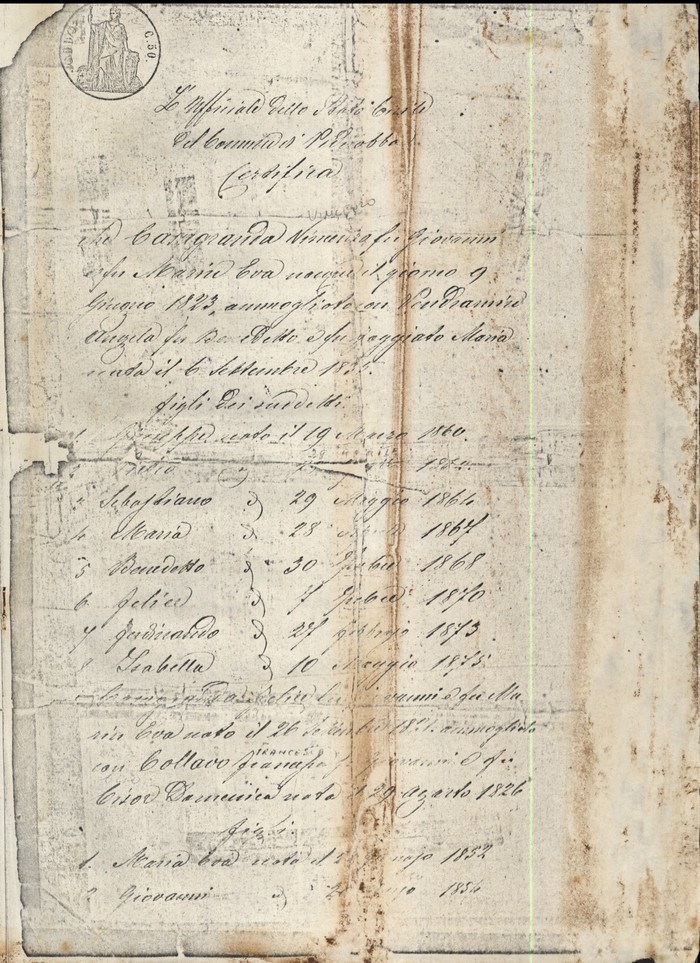 C. 50.
L'Officiale dello Stato Civile
del Comune di Pederobba
Certifica
Che Casagranda Vincenzo fu Giovanni
e fu Maria Eva nacque il giorno 9
Giugno 1823, ammogliato con Vendramini
Angela fu Benedetto e fu Maria
nata il 6 Settembre
figli dei suddetti
1 Giuseppe nato il 19 Marzo 1860.
3 Sebastiano d 29 Maggio 1864
4 Maria d 28 1867
5 Benedetto d 30 1868
6 Felice d 7 1870
7 Ferdinando d 27 febbraio 1873
8 Isabella d 10 Maggio 1875
Felice fu Giovanni e fu Ma
ria Eva nato il 26 ammogliato
con Collavo FRANCESCA fu Giovanni e fu
Domenica nata il 29 Agosto 1826
figli:
1. Maria Eva nata il 1852
2 Giovanni d 1854